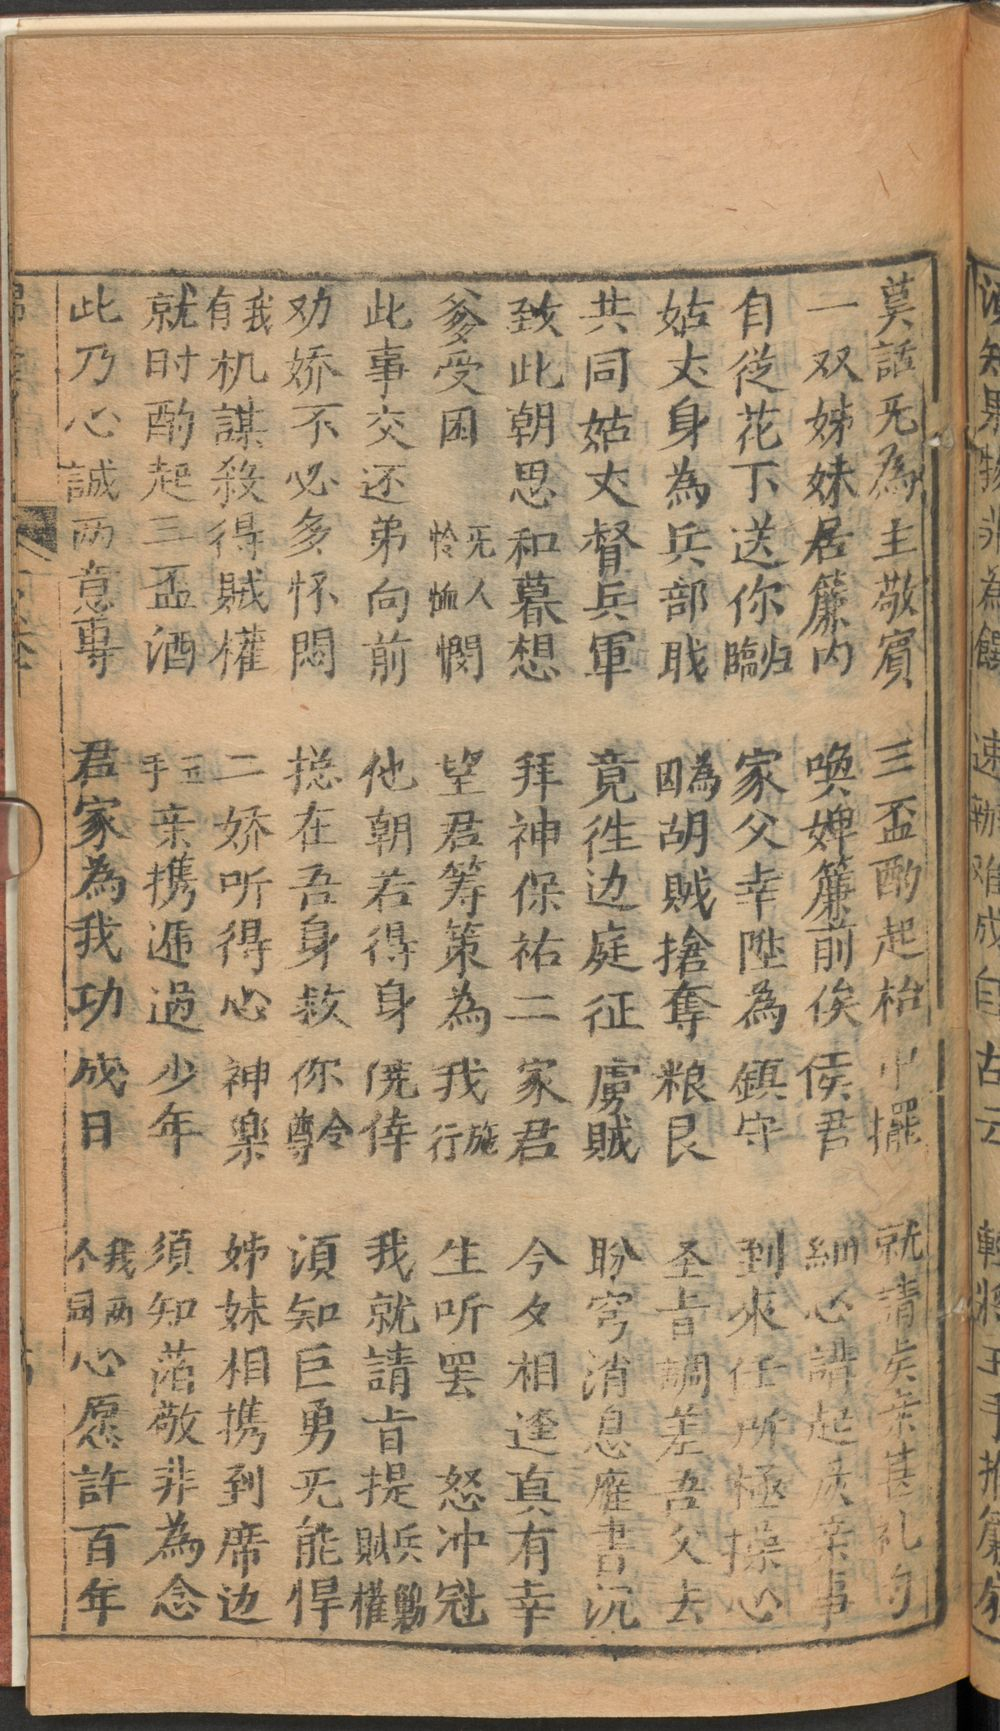 莫話旡為主敬賓　三盃酌起枱中擺　就請矣亲甚礼勻
一双姊妹居簾内　喚婢簾前俟侯君　細心講起成亲事
自從花下送你归臨　家父幸陞為鎮守　到來任所極操心
姑丈身為兵部戝　因為胡賊搶奪粮艮　圣旨調差吾父去
共同姑丈督兵軍　竟徃边庭征虜賊　盼穹消息雁書沉
致此朝思和暮想　拜神保祐二家君　今夕相逢真有幸
爹受困　旡人怜恤憫　望君筹策為我施行　生听罢　怒冲冠
此事交还弟向前　他朝若得身僥倖　我就請旨提兵勦賊權
劝娇不必多怀悶　捴在吾身救你令尊　湏知巨勇旡能悍
我有机謀殺得賊權　二娇听得心神樂　姊妹相携到席边
就时酌起三盃酒　玉手亲携逓過少年　須知菬敬非為念
此乃心誠両意専　君家為我功成日　我両个同心愿許百年